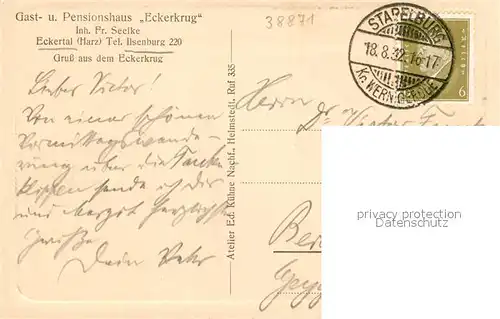 Gast- u. Pensionshaus „Eckerkrug"
Inh. Fr. Seelke
Eckertal (Harz) Tel. Ilsenburg 220
Gruß aus dem Eckerkrug
38871
STAPELBURG
18.8.32.16-17
Kr. WERNIGERODE
6
Lieber Victor!
Von einer schönen
Vormittagswande-
rung über die
klippen sende ich Dir
und Margot herzlichste
Grüße
Dein Vater
Atelier Ed. Kühne Nachf., Helmstedt, Ruf 335
Herrn
Dr. Victor
privacy protection
Datenschutz